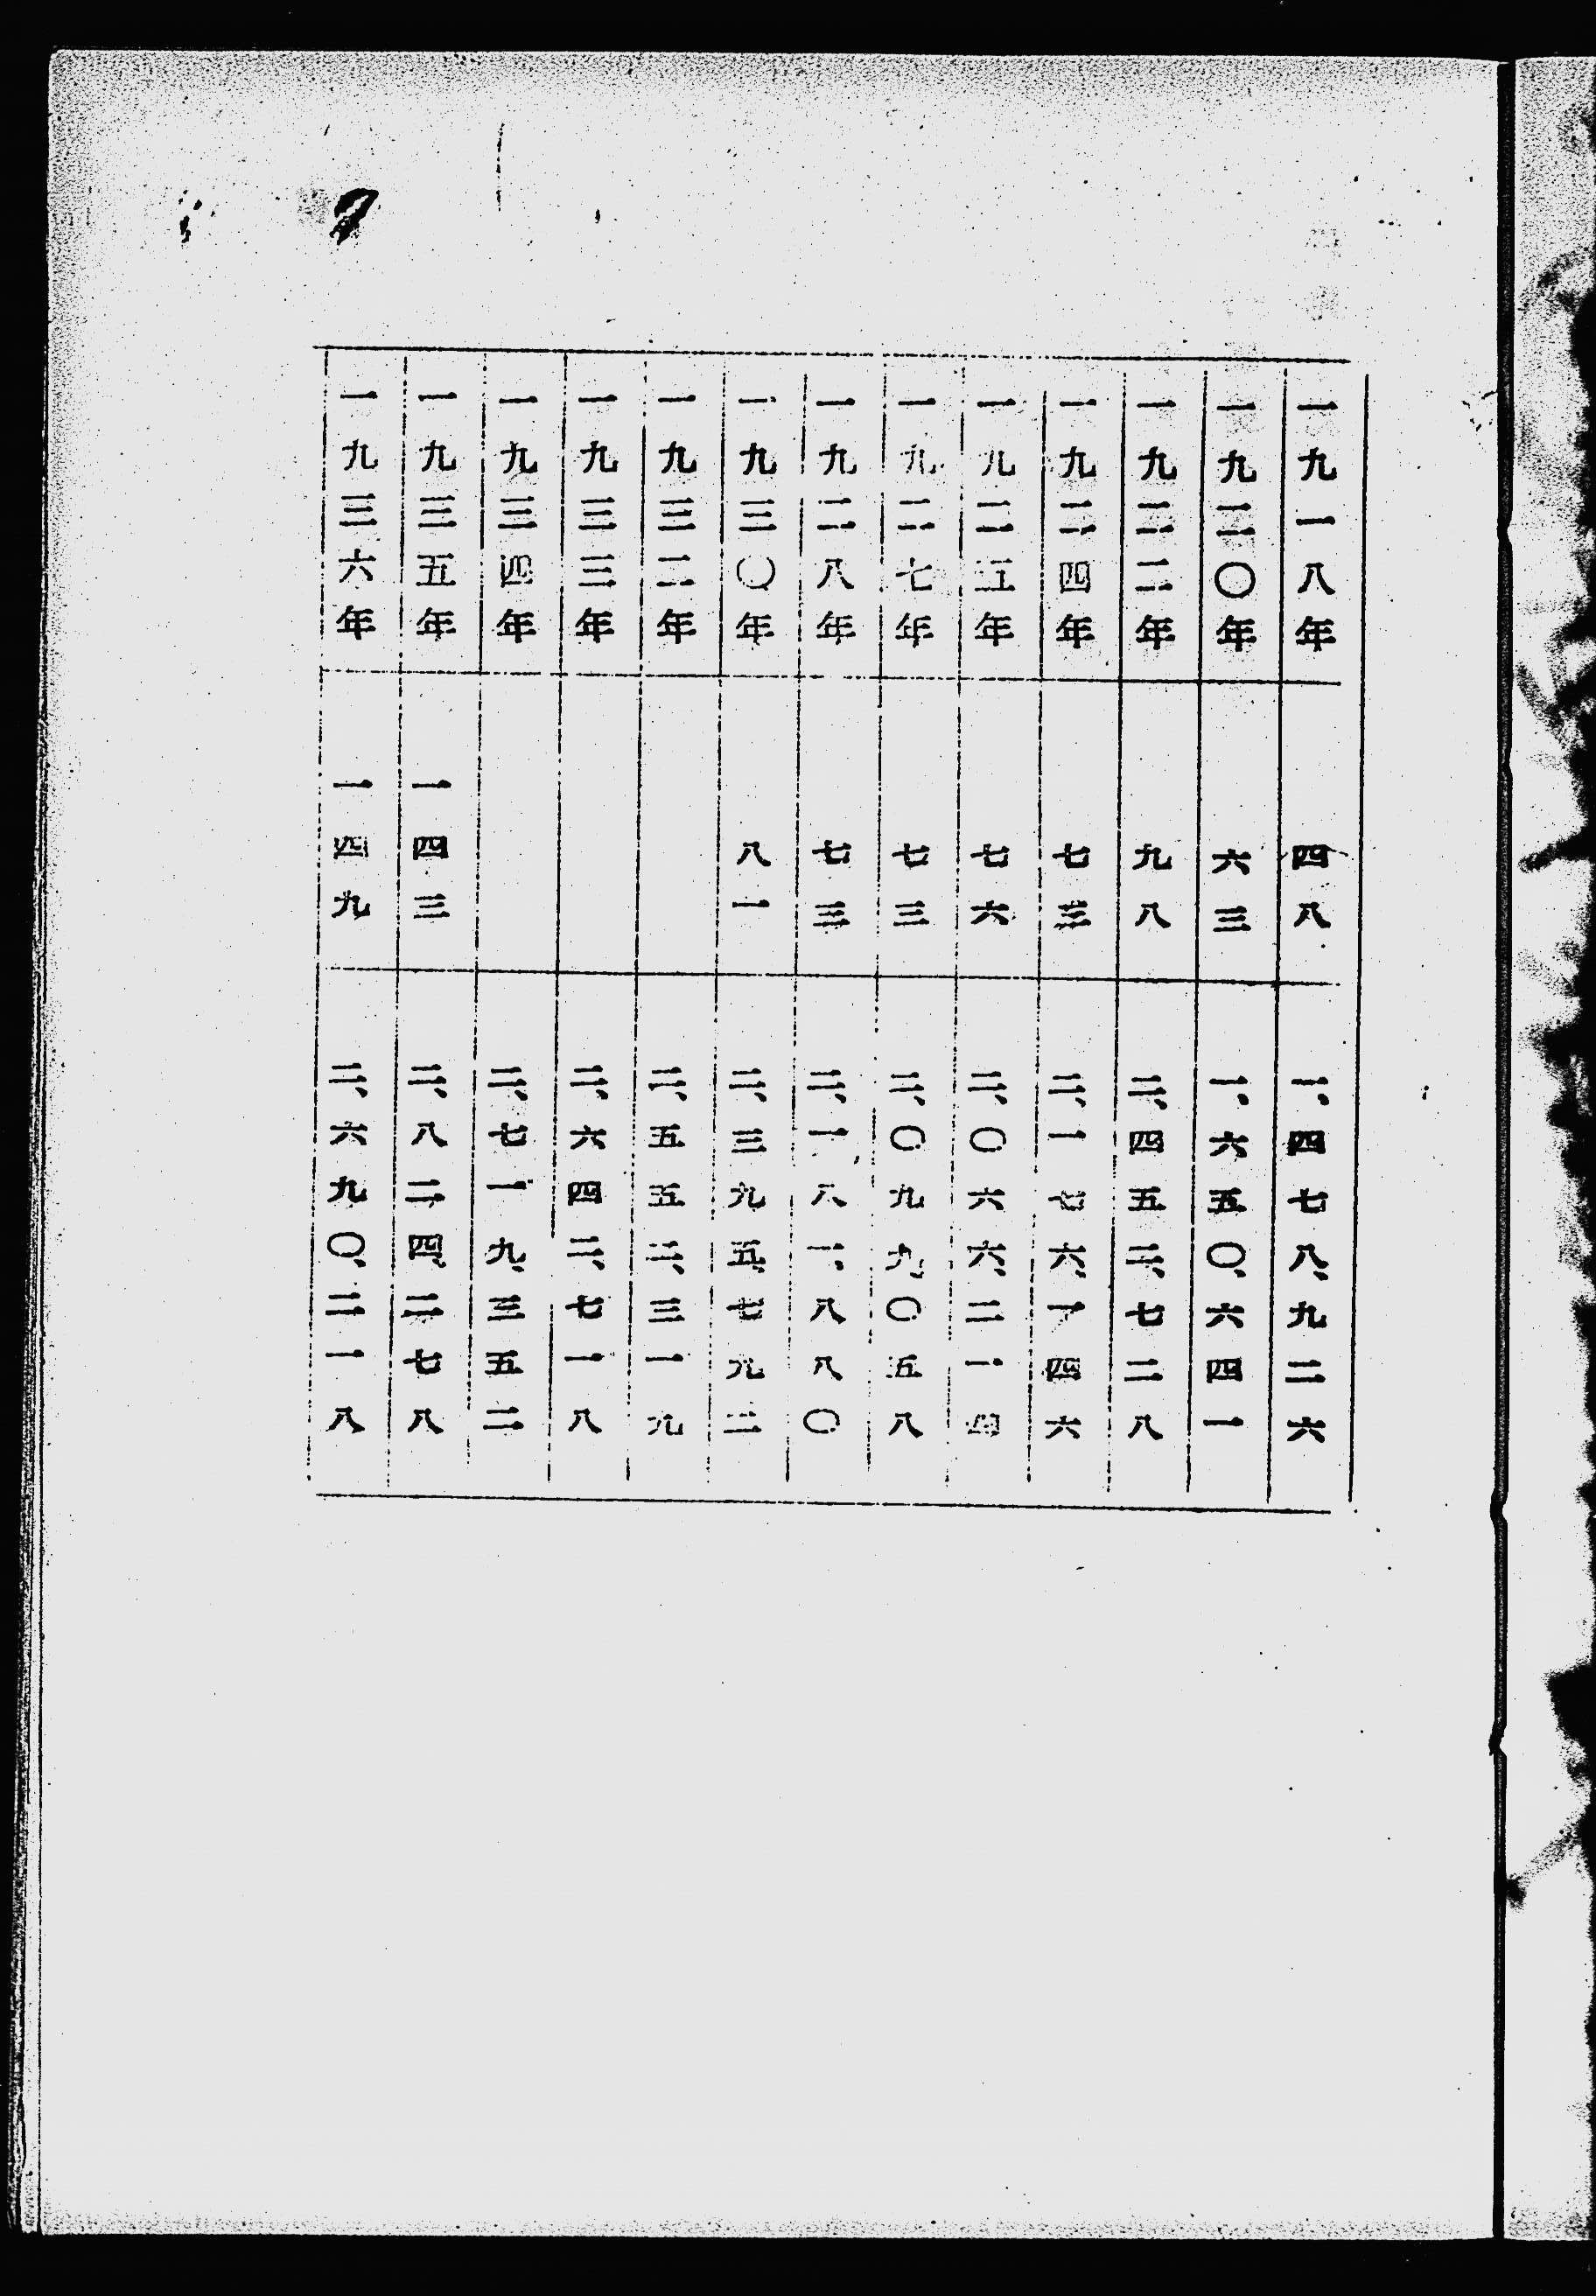 一九一八年 四八 一、四七八、九二六
一九二〇年 六三 一、六五〇、六四一
一九二二年 九八 二、四五二、七二八
一九二四年 七三 二、一七六、一四六
一九二五年 七六 二、〇六六、二一四
一九二七年 七三 二、〇九九、〇五八
一九二八年 七三 二、一八一、八八〇
一九三〇年 八一 二、三九五、七九二
一九三二年 二、五五二、三一九
一九三三年 二、六四二、七一八
一九三四年 二、七一九、三五二
一九三五年 一四三 二、八二四、二七八
一九三六年 一四九 二、六九〇、二一八